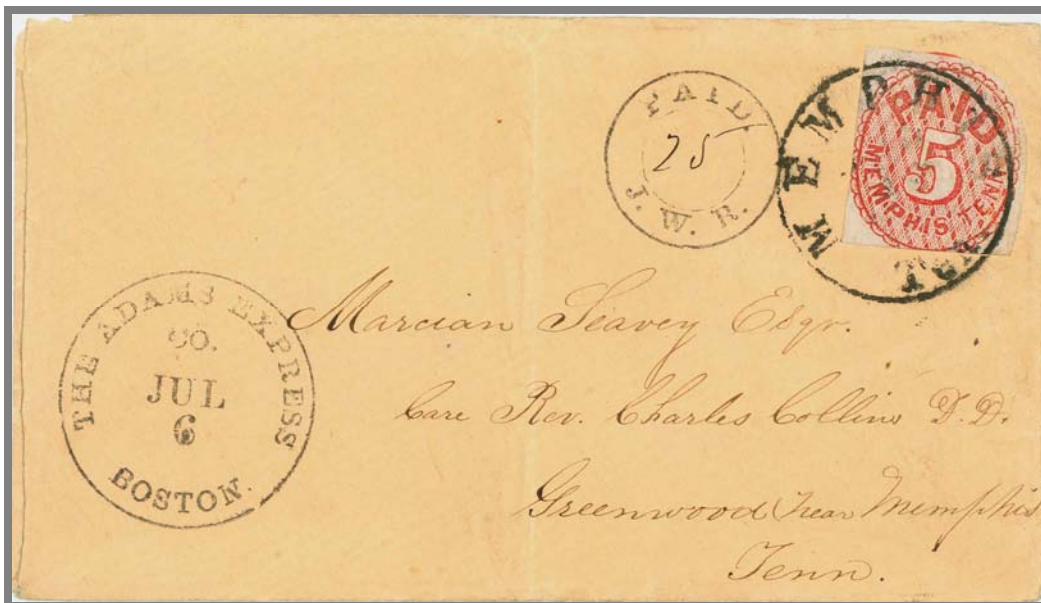 PAID.
25
J. W. R.
MEMPHIS
PAID
5
MEMPHIS, TENN.
THE ADAMS EXPRESS
CO.
JUL
6
BOSTON.
Marcian Seavey Esqr.
Care Rev. Charles Collins D.D.
Greenwood near Memphis
Tenn.